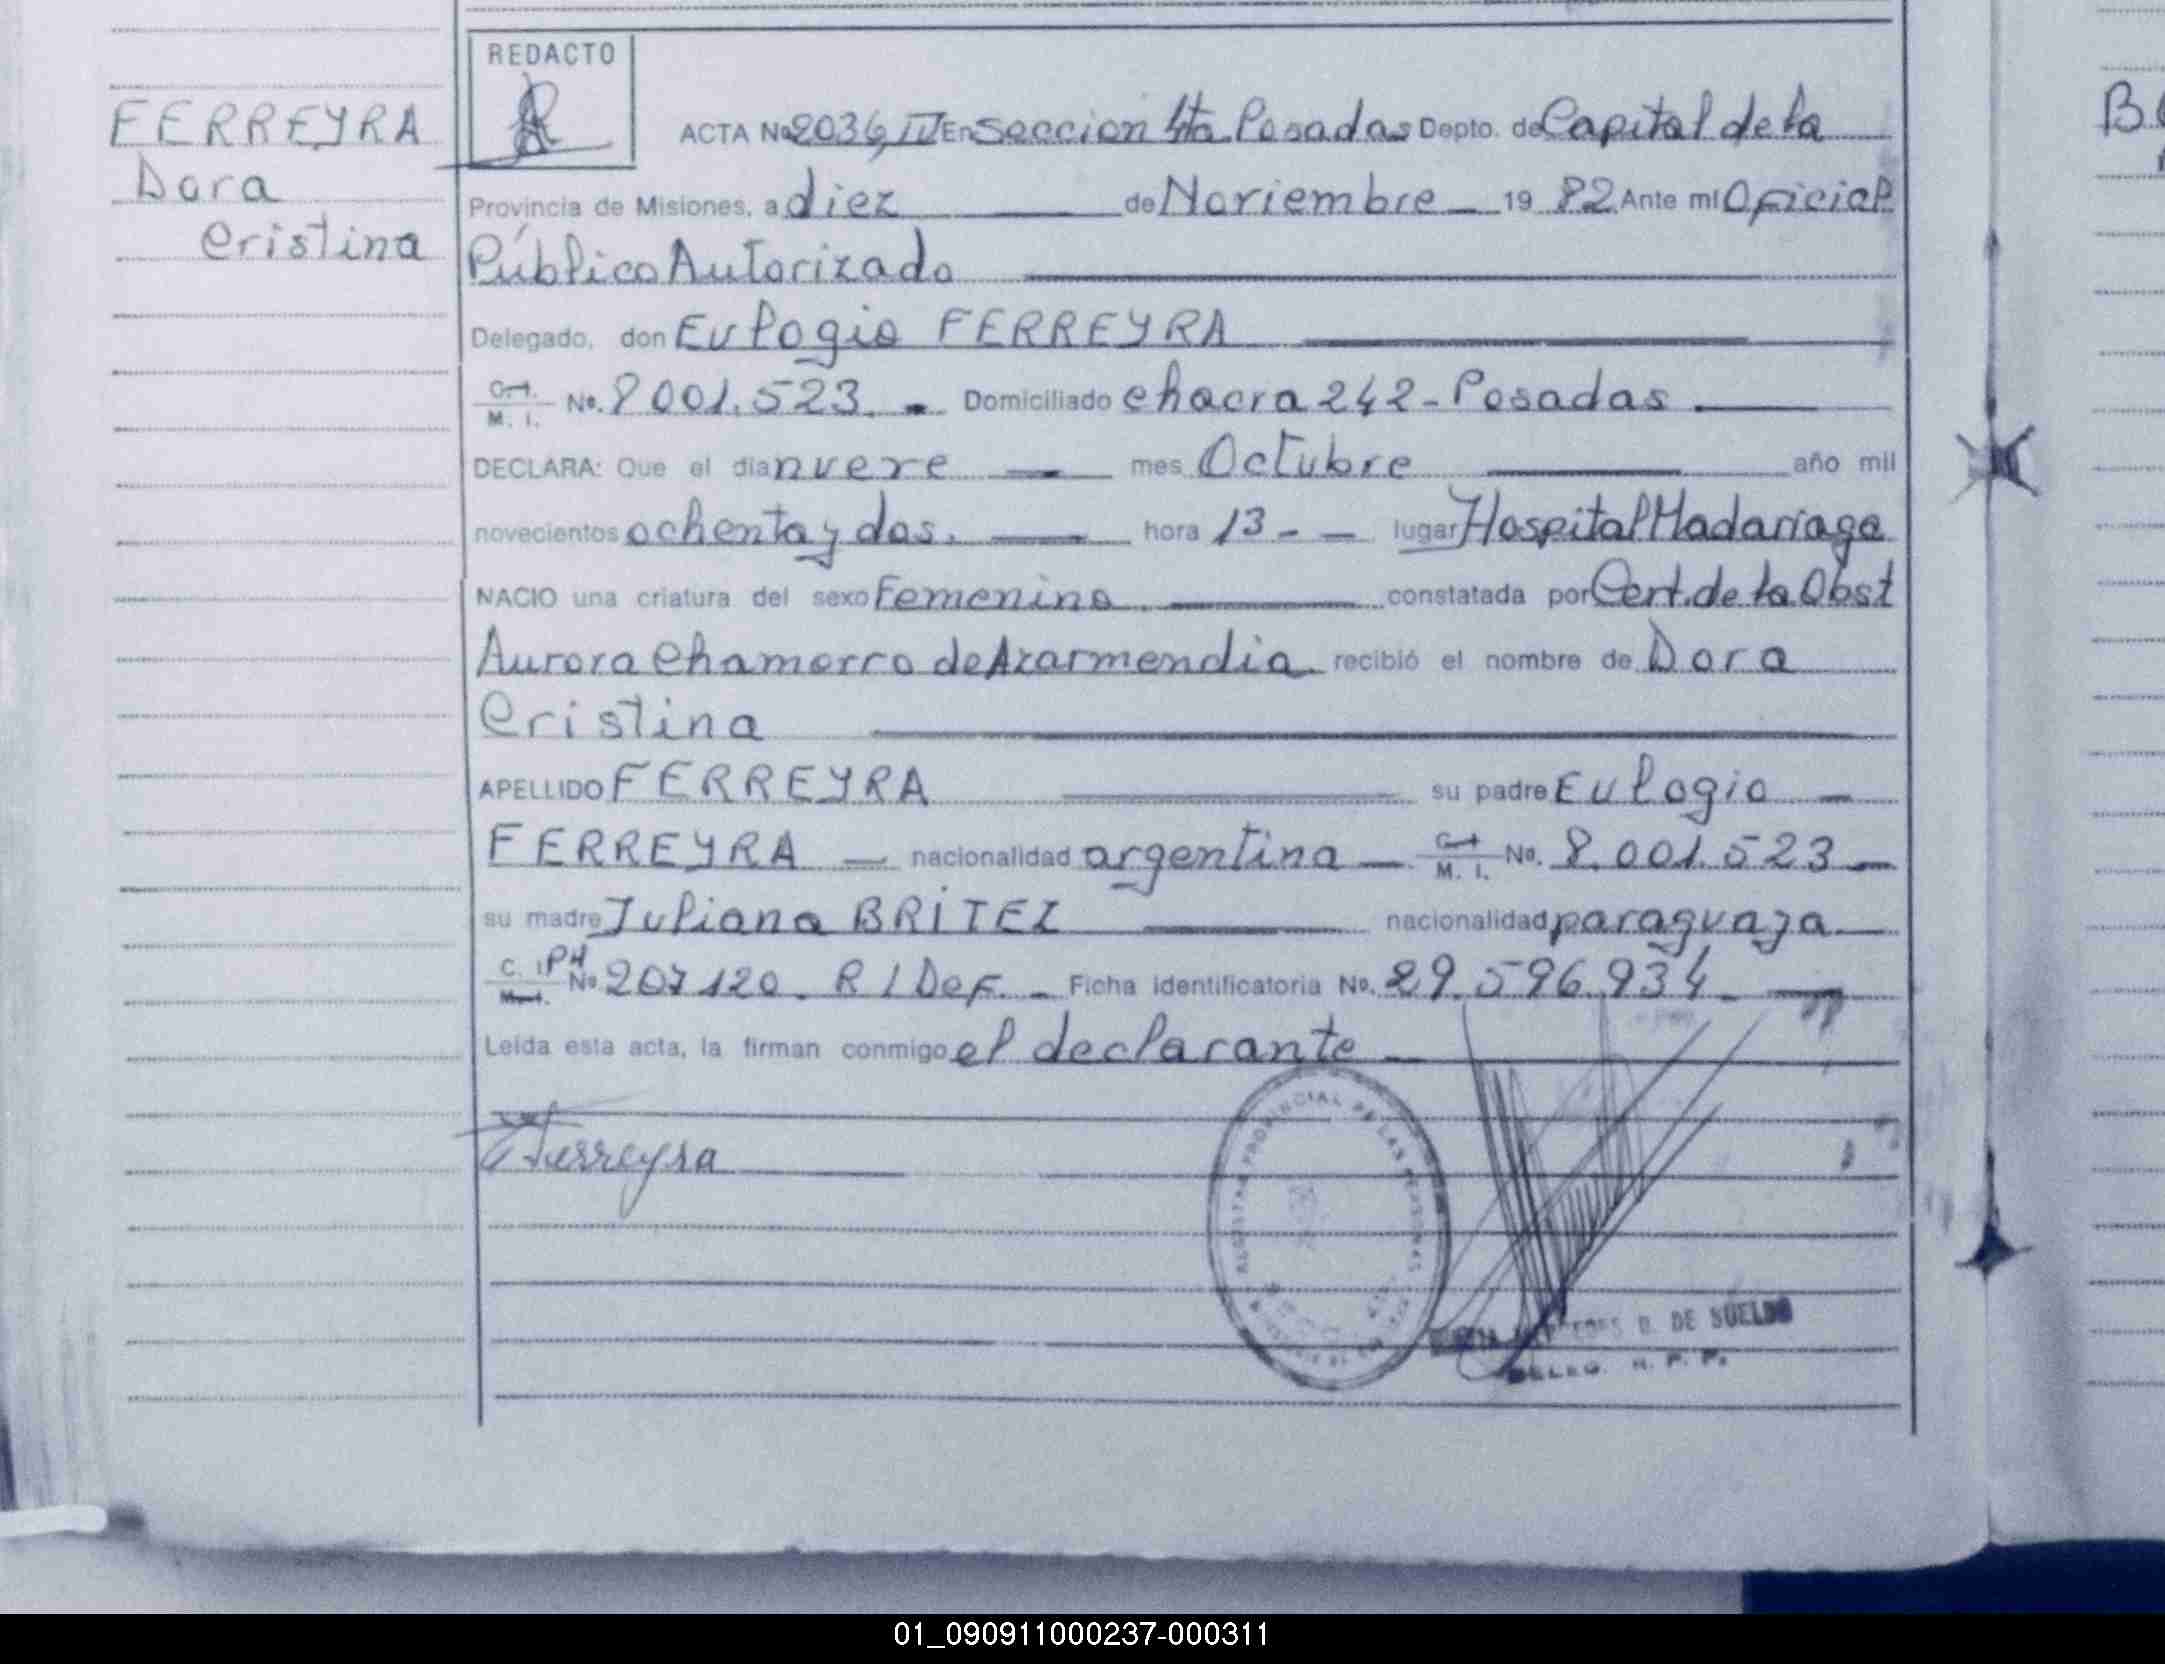 REDACTO
FERREYRA
Dora
Cristina
ACTA No 2036, IV En Seccion 4ta Posadas Depto. de Capital de la
Provincia de Misiones, a diez de Noviembre 1982 Ante mi Oficial
Público Autorizado
Delegado, don Eulogio FERREYRA
C. I.
M. I. No. 8001.523. - Domiciliado chacra 242 - Posadas
DECLARA: Que el dia nueve mes Octubre año mil
novecientos ochenta y dos. hora 13 - - lugar Hospital Madariaga
NACIO una criatura del sexo Femenino constatada por Cert. de la Obst
Aurora Chamorro de Azarmendia recibió el nombre de Dora
Cristina
APELLIDO FERREYRA su padre Eulogio
FERREYRA nacionalidad argentina C. I. M. I. No. 8.001.523
su madre Juliana BRITEZ nacionalidad paraguaya
C. I. PH
M. I. No 207120. R / Def. - Ficha identificatoria No. 29.596.934
Leida esta acta, la firman conmigo el declarante
Ferreyra
PROVINCIAL DE LAS PERSONAS
B. DE SUELDO
DELEG. R. P. P.
B
01_090911000237-000311